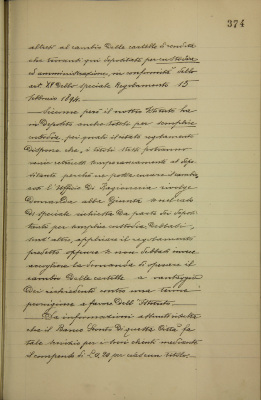 374
altresì al cambio delle cartelle di rendita
che trovansi qui depositate per custodia
ed amministrazione, in conformità dello
art. XI dello speciale Regolamento 15
febbraio 1894.
Siccome però il nostro Istituto ha
in Deposito anche titoli per semplice
custodia, pei quali il citato regolamento
dispone che i titoli stessi potranno
venir restituiti temporaneamente al depo-
sitante perchè ne possa curare il cambio,
così l'Ufficio di Ragioneria rivolge
domanda alla Giunta se nel caso
di speciale richiesta da parte dei depo-
sitanti per semplice custodia debbasi,
senz'altro, applicare il regolamento
predetto oppure se non debbasi invece
accogliere la domanda di operare il
cambio delle cartelle a vantaggio
dei richiedenti contro una tenue
provvigione a favore dell'Istituto.
Da informazioni attinte risulta
che il Banco di questa Città fa
tale servizio per i suoi clienti mediante
il compenso di L 0,20 per ciascun titolo.